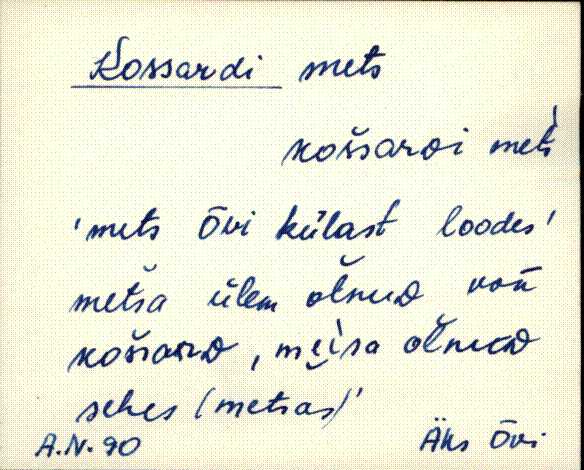 Kossardi mets
košsardi mets'
'mets Õvi külast loodes'
metša ülem olnud
košsard, olnud
sehes (metsas)'
A.N. 90 Äks Õvi